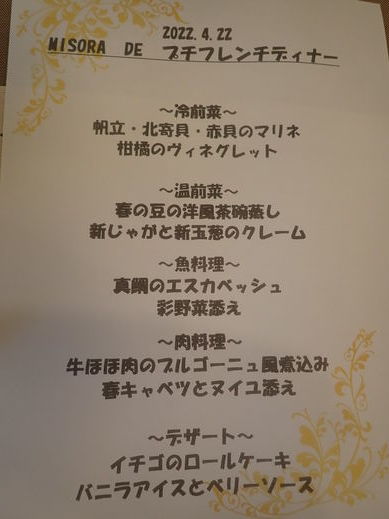 2022.4.22
MISORA DE プチフレンチディナー
～冷前菜～
帆立・北寄貝・赤貝のマリネ
柑橘のヴィネグレット
～温前菜～
春の豆の洋風茶碗蒸し
新じゃがと新玉葱のクレーム
～魚料理～
真鯛のエスカベッシュ
彩野菜添え
～肉料理～
牛ほほ肉のブルゴーニュ風煮込み
春キャベツとヌイユ添え
～デザート～
イチゴのロールケーキ
バニラアイスとベリーソース